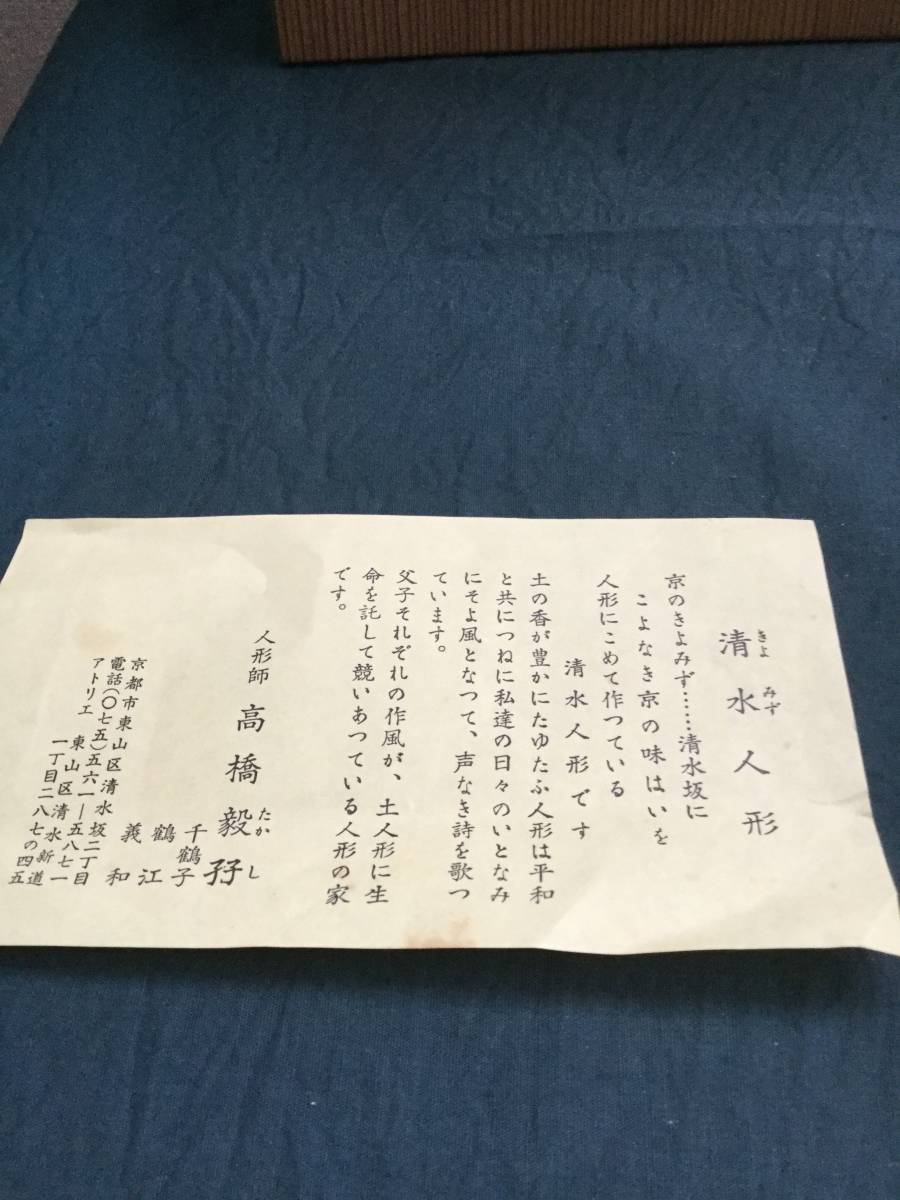 清水人形
きよみず
京のきよみず……清水坂に
こよなき京の味はいを
人形にこめて作つている
清水人形です
土の香が豊かにたゆたふ人形は平和
と共につねに私達の日々のいとなみ
にそよ風となつて、声なき詩を歌つ
ています。
父子それぞれの作風が、土人形に生
命を託して競いあつている人形の家
です。
人形師 高橋毅孖
たかし
千鶴子
鶴江
義和
京都市東山区清水坂二丁目
電話(〇七五)五六一―五八七一
アトリエ 東山区清水新道
一丁目二八七の四五